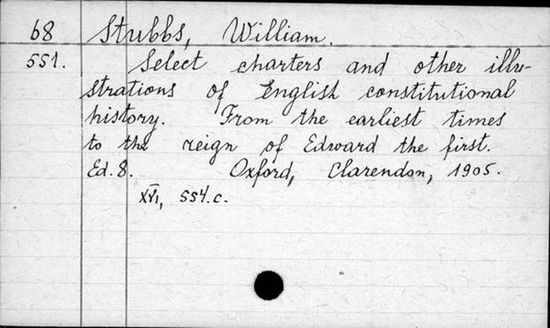 68 Stubbs, William.
551. Select charters and other illu-
strations of English constitutional
history. From the earliest times
to the reign of Edward the first.
Ed. 8. Oxford, Clarendon, 1905.
XVI, 554.c.